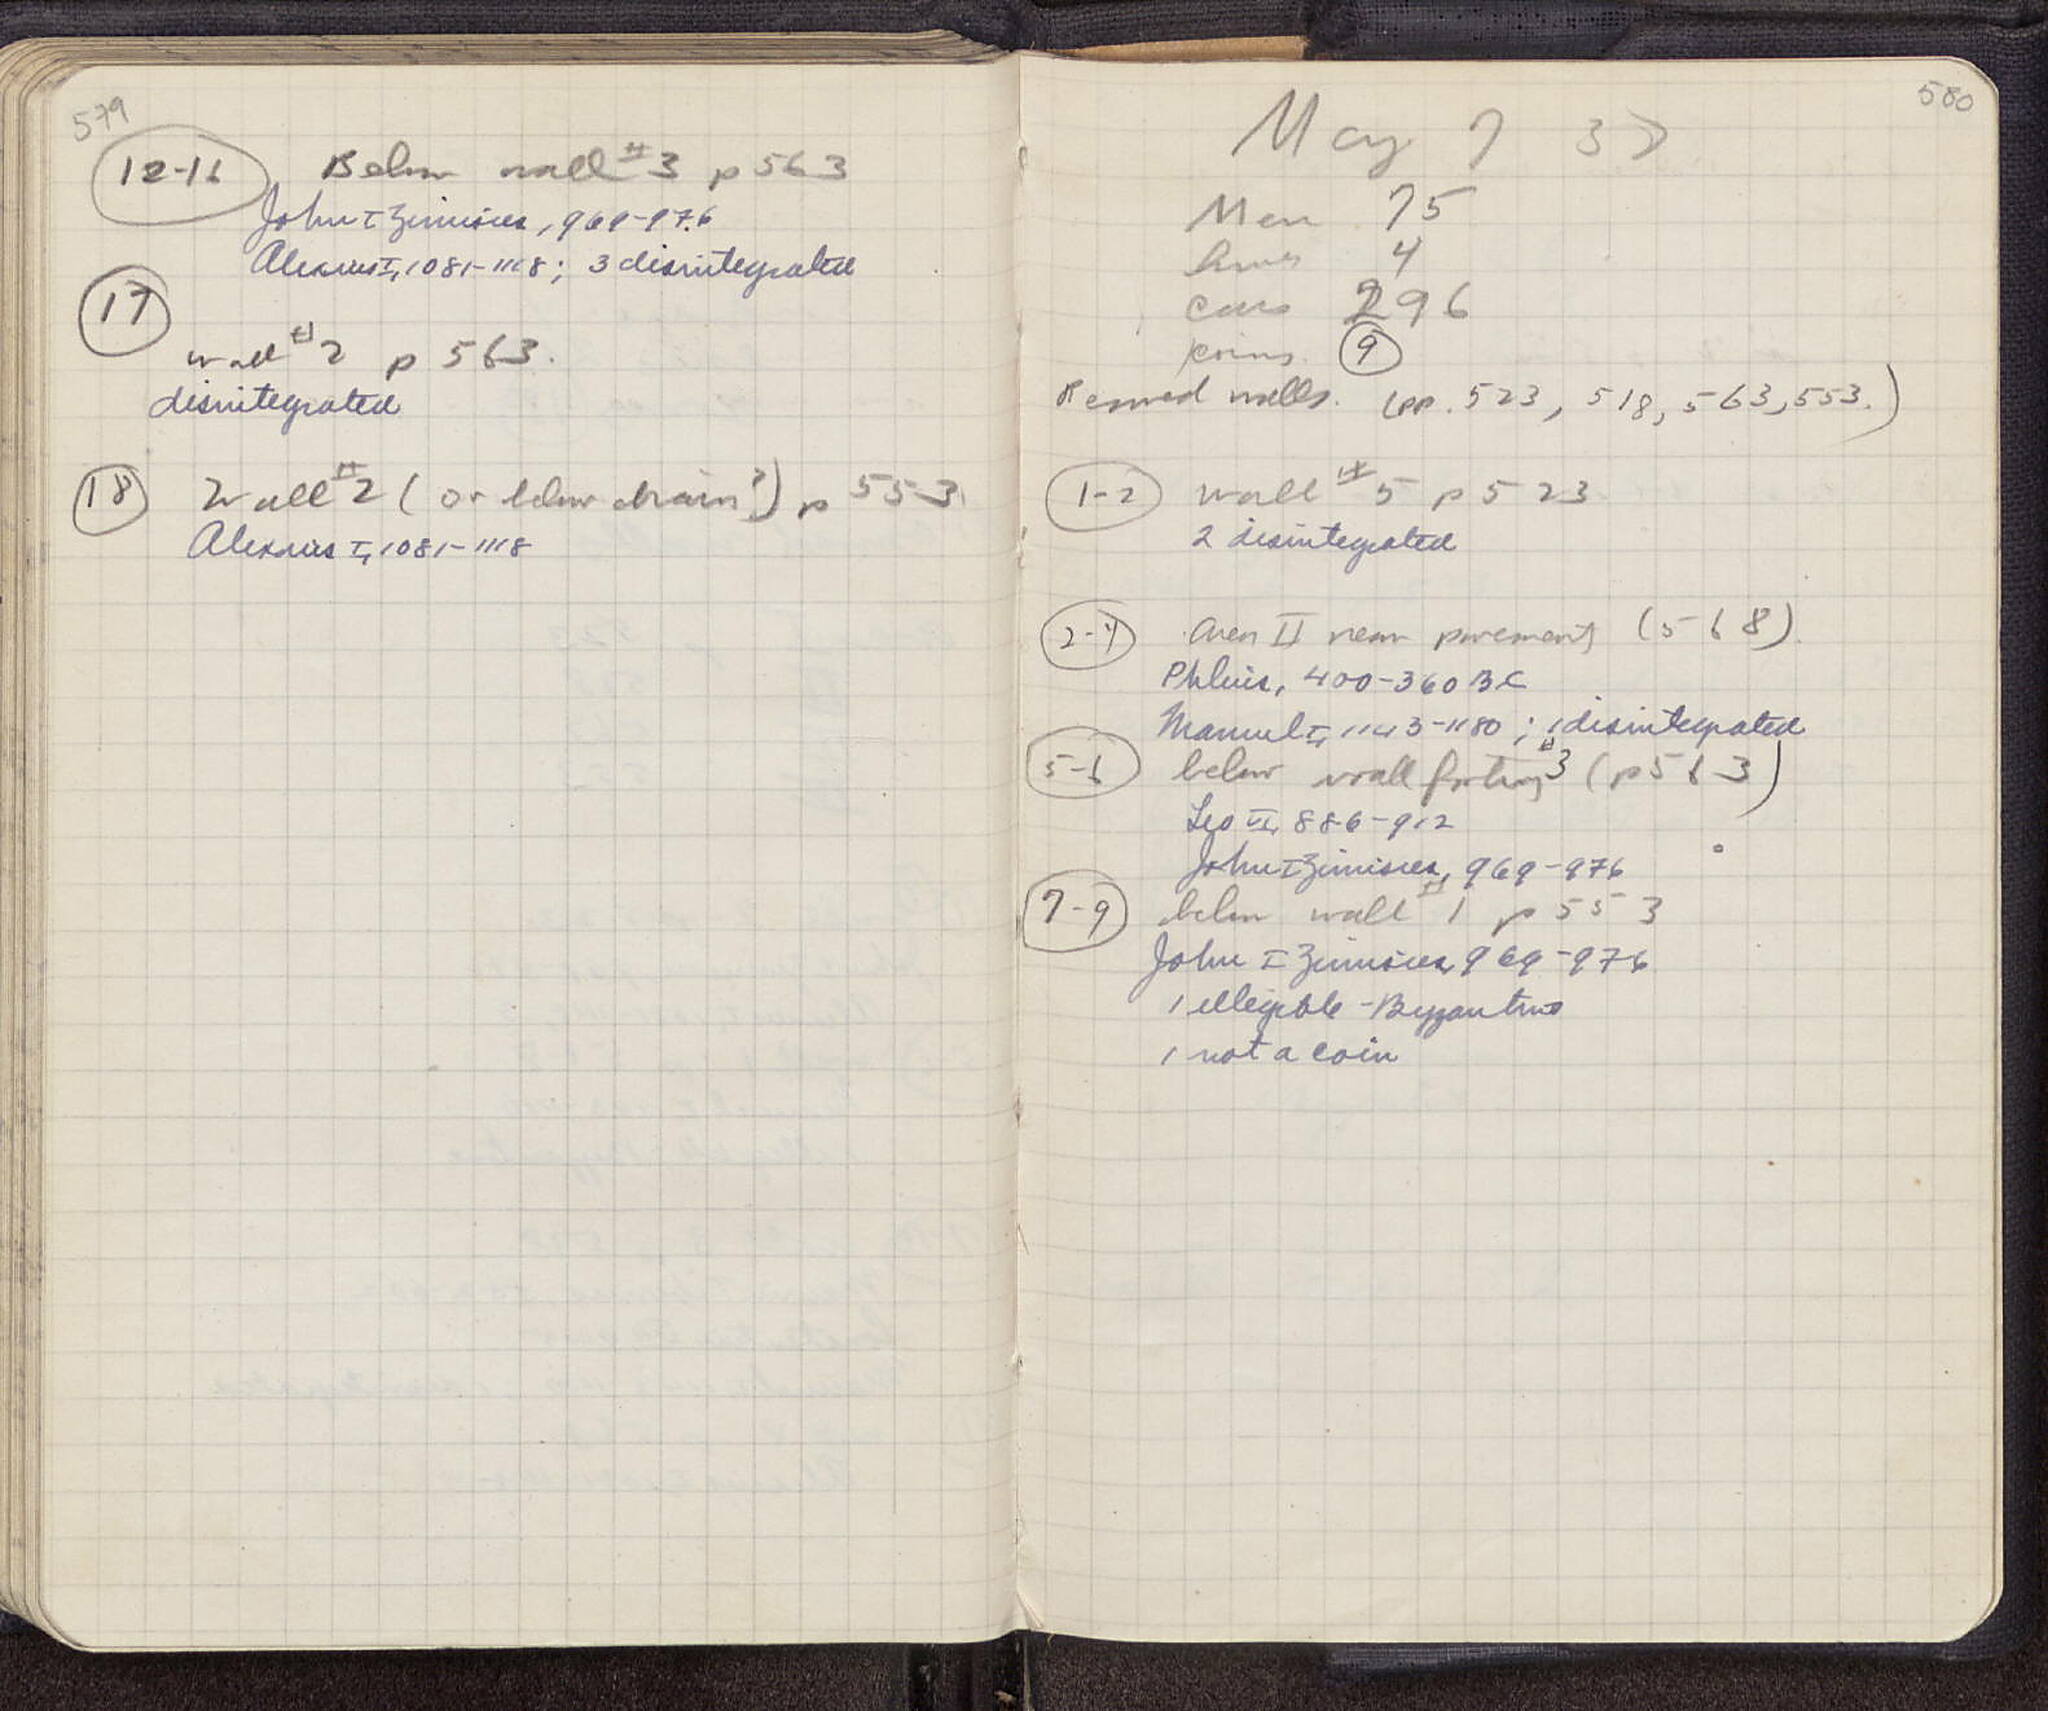 579
12-16 Below wall #3 p 563
John I Zimisces, 969-976
Alexius I, 1081-1118; 3 disintegrated
17
wall #2 p 563.
disintegrated
18 Wall #2 (or below drain?) p 553
Alexius I, 1081-1118
580
May 7 37
Men 75
4
cars 296
coins 9
Removed walls. (pp. 523, 518, 563, 553.)
1-2 wall #5 p 523
2 disintegrated
2-4 Area II near pavement (568).
Phlius, 400-360 BC
Manuel I, 1143-1180; 1 disintegrated
5-6 below wall footing #3 (p 563)
Leo VI, 886-912
John I Zimisces, 969-976
7-9 below wall #1 p 553
John I Zimisces, 969-976
1 illegible - Byzantine
1 not a coin